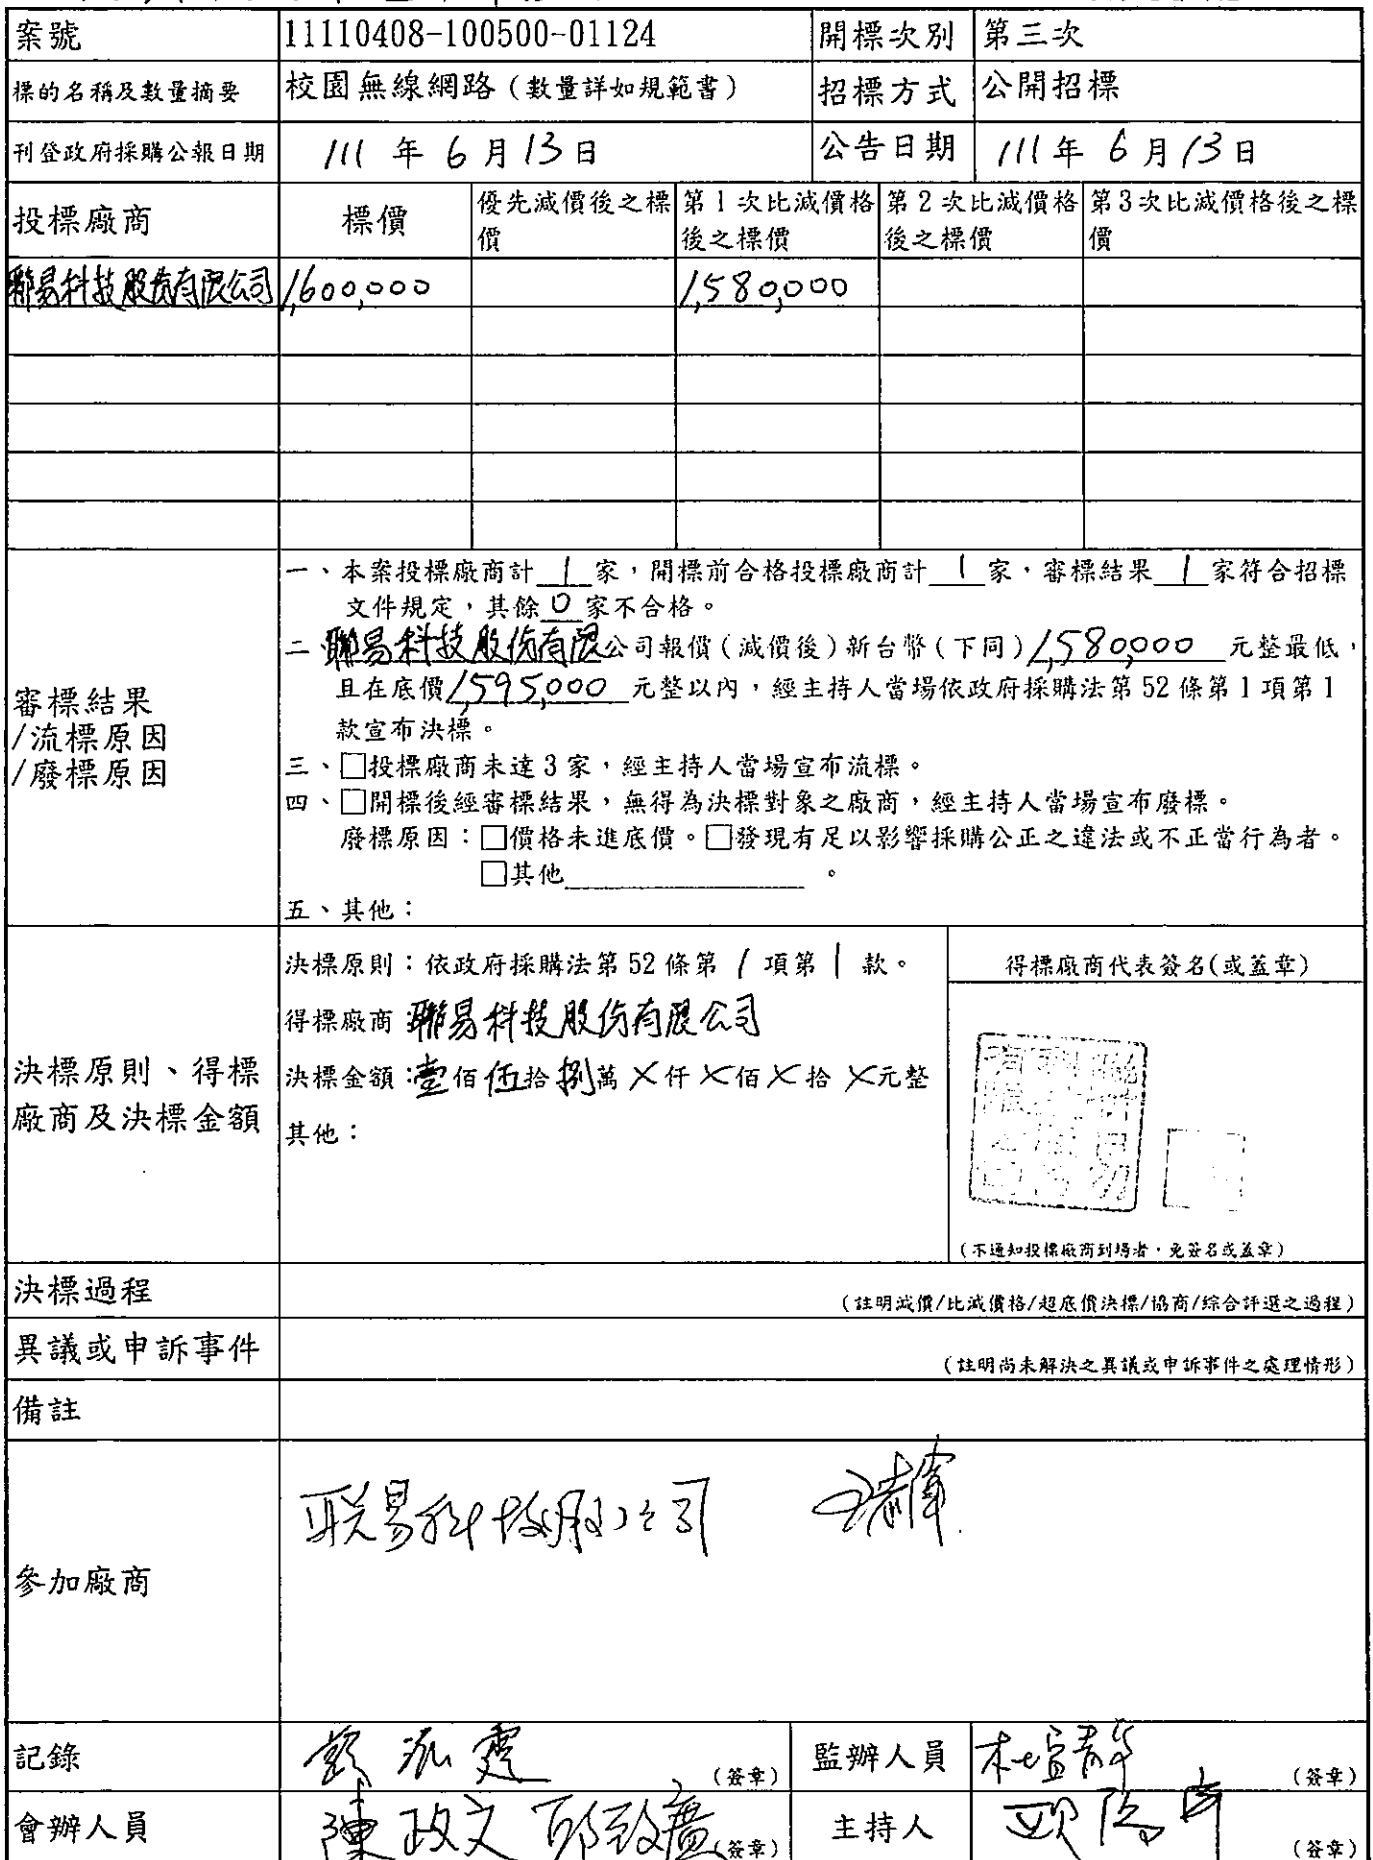 案號 11110408-100500-01124 開標次別 第三次
標的名稱及數量摘要 校園無線網路(數量詳如規範書) 招標方式 公開招標
刊登政府採購公報日期 111年6月13日 公告日期 111年6月13日
投標廠商 標價 優先減價後之標價 第1次比減價格後之標價 第2次比減價格後之標價 第3次比減價格後之標價
聯易科技股份有限公司 1,600,000 1,580,000
審標結果
/流標原因
/廢標原因
一、本案投標廠商計 1 家,開標前合格投標廠商計 1 家,審標結果 1 家符合招標
文件規定,其餘 0 家不合格。
二 聯易科技股份有限公司報價(減價後)新台幣(下同)1,580,000 元整最低,
且在底價1,595,000 元整以內,經主持人當場依政府採購法第52條第1項第1
款宣布決標。
三、□投標廠商未達3家,經主持人當場宣布流標。
四、□開標後經審標結果,無得為決標對象之廠商,經主持人當場宣布廢標。
廢標原因:□價格未進底價。□發現有足以影響採購公正之違法或不正當行為者。
□其他 。
五、其他:
決標原則、得標
廠商及決標金額
決標原則:依政府採購法第52條第 1 項第 1 款。
得標廠商:聯易科技股份有限公司
決標金額:壹佰伍拾捌萬X仟X佰X拾X元整
其他:
得標廠商代表簽名(或蓋章)
(不通知投標廠商到場者,免簽名或蓋章)
決標過程 (註明減價/比減價格/超底價決標/協商/綜合評選之過程)
異議或申訴事件 (註明尚未解決之異議或申訴事件之處理情形)
備註
參加廠商
記錄 (簽章) 監辦人員 (簽章)
會辦人員 陳政文 (簽章) 主持人 (簽章)